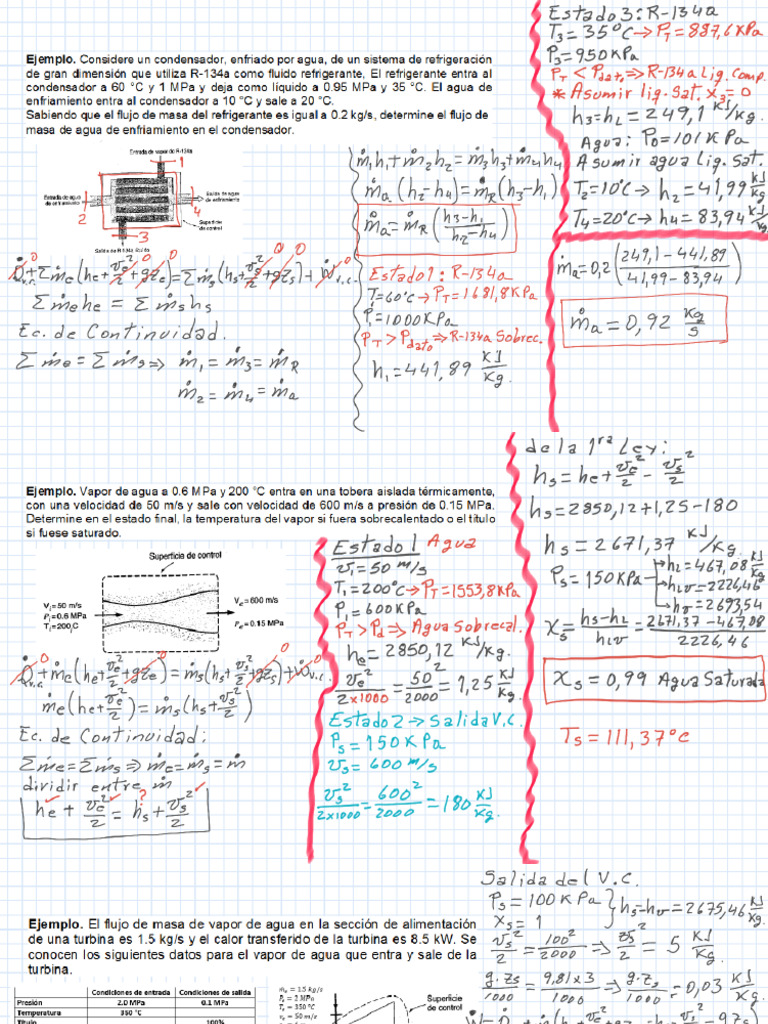 Ejemplo. Considere un condensador, enfriado por agua, de un sistema de refrigeración
de gran dimensión que utiliza R-134a como fluido refrigerante, El refrigerante entra al
condensador a 60 °C y 1 MPa y deja como líquido a 0.95 MPa y 35 °C. El agua de
enfriamiento entra al condensador a 10 °C y sale a 20 °C.
Sabiendo que el flujo de masa del refrigerante es igual a 0.2 kg/s, determine el flujo de
masa de agua de enfriamiento en el condensador.
Entrada de vapor de R-134a
1
Entrada de agua
de enfriamiento
2
Salida de agua
de enfriamiento
4
Superficie
de control
3
Salida de R-134a, fluido
Q̇v.c. + Σṁe(he+ve²/2+gze) = Σṁs(hs+vs²/2+gzs) + Ẇv.c.
Σṁehe = Σṁshs
Ec. de Continuidad.
Σṁe = Σṁs ⇒ ṁ1 = ṁ3 = ṁR
ṁ2 = ṁ4 = ṁa
ṁ1h1+ṁ2h2 = ṁ3h3+ṁ4h4
ṁa(h2-h4) = ṁR(h3-h1)
ṁa = ṁR((h3-h1)/(h2-h4))
Estado 1: R-134a
T1=60°C → PT=1681,8KPa
P1=1000KPa
PT>Pdato ⇒ R-134a Sobrec.
h1=441,89 KJ/Kg.
Estado 3: R-134a
T3=35°C → PT=887,6KPa
P3=950KPa
PT<Pdato ⇒ R-134a Liq. Comp.
* Asumir liq. Sat. X3=0
h3=hL=249,1 KJ/Kg.
Agua: P0=101KPa
Asumir agua Liq. Sat.
T2=10°C → h2=41,99 KJ/Kg
T4=20°C → h4=83,94 KJ/Kg
ṁa=0,2((249,1-441,89)/(41,99-83,94))
ṁa=0,92 Kg/s
Ejemplo. Vapor de agua a 0.6 MPa y 200 °C entra en una tobera aislada térmicamente,
con una velocidad de 50 m/s y sale con velocidad de 600 m/s a presión de 0.15 MPa.
Determine en el estado final, la temperatura del vapor si fuera sobrecalentado o el título
si fuese saturado.
Superficie de control
Vi=50 m/s
Pi=0.6 MPa
Ti=200°C
Ve=600 m/s
Pe=0.15 MPa
Q̇v.c. + ṁe(he+ve²/2+gze) = ṁs(hs+vs²/2+gzs) + Ẇv.c.
ṁe(he+ve²/2) = ṁs(hs+vs²/2)
Ec. de Continuidad:
Σṁe=Σṁs ⇒ ṁe=ṁs=ṁ
dividir entre ṁ
he + ve²/2 = hs + vs²/2
Estado 1 Agua
v1=50 m/s
T1=200°C → PT=1553,8KPa
P1=600KPa
PT>Pd ⇒ Agua Sobrecal.
he=2850,12 KJ/Kg.
ve²/(2x1000) = 50²/2000 = 1,25 KJ/Kg.
Estado 2 → Salida V.C.
Ps=150KPa
vs=600 m/s
vs²/(2x1000) = 600²/2000 = 180 KJ/Kg.
de la 1ra Ley:
hs=he+ve²/2-vs²/2
hs=2850,12+1,25-180
hs=2671,37 KJ/Kg.
Ps=150KPa → hL=467,08 KJ/Kg
→ hLV=2226,46
→ hV=2693,54
Xs=(hs-hL)/hLV=(2671,37-467,08)/2226,46
Xs=0,99 Agua Saturada
Ts=111,37°C
Ejemplo. El flujo de masa de vapor de agua en la sección de alimentación
de una turbina es 1.5 kg/s y el calor transferido de la turbina es 8.5 kW. Se
conocen los siguientes datos para el vapor de agua que entra y sale de la
turbina.
Condiciones de entrada Condiciones de salida
Presión 2.0 MPa 0.1 MPa
Temperatura 350 °C
Título 100%
ṁe = 1.5 kg/s
Pe = 2 MPa
Te = 350 °C
ve = 50 m/s
Superficie
de control
Salida del V.C.
Ps=100KPa
Xs=1
hs=hV=2675,46 KJ/Kg
vs²/2=100²/2000 ⇒ vs²/2=5 KJ/Kg.
g.zs/1000=9,81x3/1000 ⇒ g.zs/1000=0,03 KJ/Kg